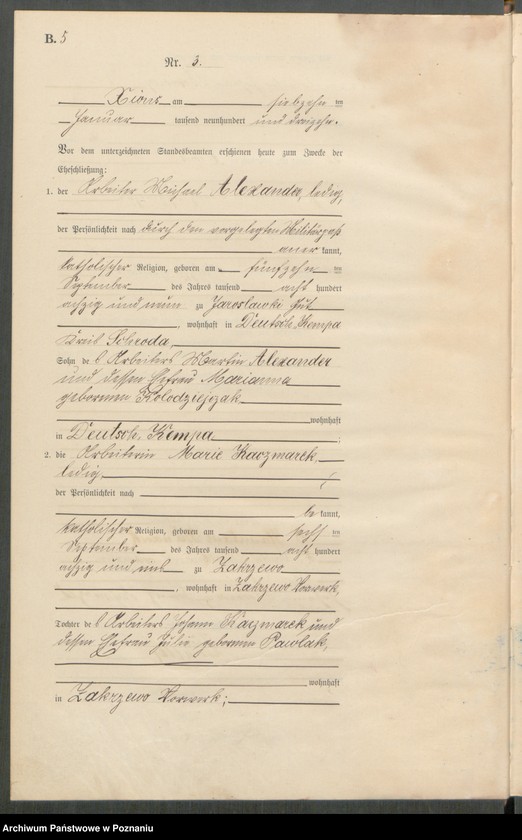 B. 5
Nr. 3.
Xions am siebzehn ten
Januar tausend neunhundert und dreizehn.
Vor dem unterzeichneten Standesbeamten erschienen heute zum Zwecke der
Eheschließung:
1. der Arbeiter Michael Alexander, ledig,
der Persönlichkeit nach durch den vorgelegten Militärpaß
aner kannt,
katholischer Religion, geboren am fünfzehn ten
September des Jahres tausend acht hundert
achzig und neun zu Jaroslawki Gut
, wohnhaft in Deutsch, Kempa
Kreis Schroda
Sohn des Arbeiters Martin Alexander
und dessen Ehefrau Marianna
geborenen Kolodziejczak
wohnhaft
in Deutsch, Kempa ;
2. die Arbeiterin Marie Kaczmarek,
ledig,
der Persönlichkeit nach
be kannt,
katholischer Religion, geboren am sechs ten
September des Jahres tausend acht hundert
achzig und zu Zakrzewo
, wohnhaft in Zakrzewo Vorwerk,
Tochter des Arbeiters Johann Kaczmarek und
dessen Ehefrau geborenen Pawlak,
wohnhaft
in Zakrzewo Vorwerk;
Archiwum Państwowe w Poznaniu